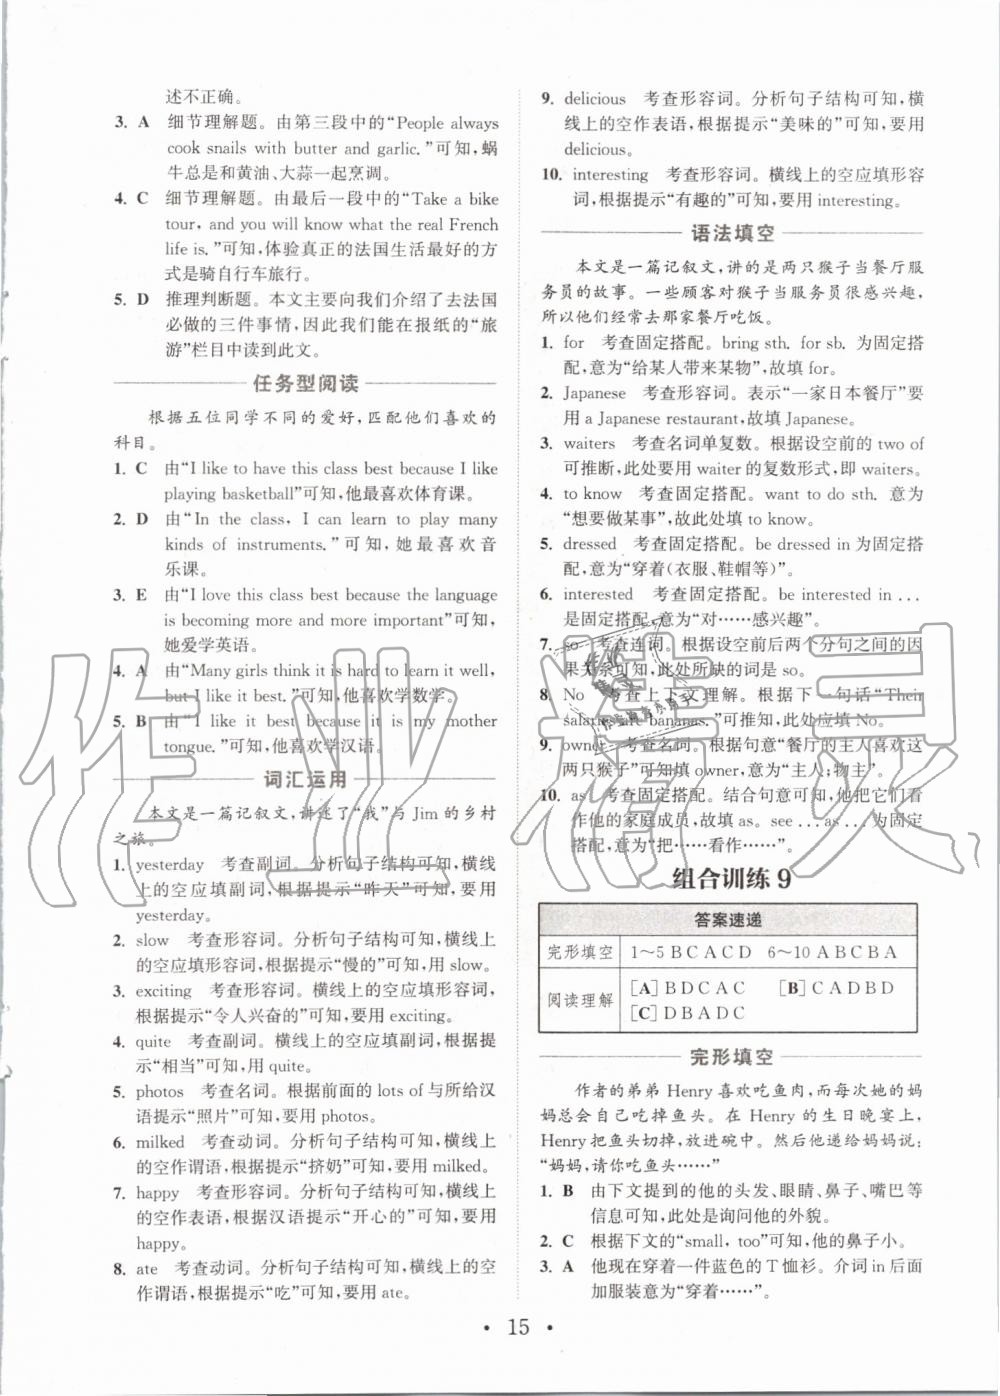 述不正确。
3. A 细节理解题。由第三段中的“People always
cook snails with butter and garlic.”可知,蜗
牛总是和黄油、大蒜一起烹调。
4. C 细节理解题。由最后一段中的“Take a bike
tour, and you will know what the real French
life is.”可知,体验真正的法国生活最好的方
式是骑自行车旅行。
5. D 推理判断题。本文主要向我们介绍了去法国
必做的三件事情,因此我们能在报纸的“旅
游”栏目中读到此文。
任务型阅读
根据五位同学不同的爱好,匹配他们喜欢的
科目。
1. C 由“I like to have this class best because I like
playing basketball”可知,他最喜欢体育课。
2. D 由“In the class, I can learn to play many
kinds of instruments.”可知,她最喜欢音
乐课。
3. E 由“I love this class best because the language
is becoming more and more important”可知,
她爱学英语。
4. A 由“Many girls think it is hard to learn it well,
but I like it best.”可知,他喜欢学数学。
5. B 由“I like it best because it is my mother
tongue.”可知,他喜欢学汉语。
词汇运用
本文是一篇记叙文,讲述了“我”与 Jim 的乡村
之旅。
1. yesterday 考查副词。分析句子结构可知,横线
上的空应填副词,根据提示“昨天”可知,要用
yesterday。
2. slow 考查形容词。分析句子结构可知,横线上
的空应填形容词,根据提示“慢的”可知,用 slow。
3. exciting 考查形容词。横线上的空应填形容词,
根据提示“令人兴奋的”可知,要用 exciting。
4. quite 考查副词。横线上的空应填副词,根据提
示“相当”可知,用 quite。
5. photos 考查名词。根据前面的 lots of 与所给汉
语提示“照片”可知,要用 photos。
6. milked 考查动词。分析句子结构可知,横线上
的空作谓语,根据提示“挤奶”可知,要用 milked。
7. happy 考查形容词。分析句子结构可知,横线上
的空作表语,根据汉语提示“开心的”可知,要用
happy。
8. ate 考查动词。分析句子结构可知,横线上的空
作谓语,根据提示“吃”可知,要用 ate。
9. delicious 考查形容词。分析句子结构可知,横
线上的空作表语,根据提示“美味的”可知,要用
delicious。
10. interesting 考查形容词。横线上的空应填形容
词,根据提示“有趣的”可知,要用 interesting。
语法填空
本文是一篇记叙文,讲的是两只猴子当餐厅服
务员的故事。一些顾客对猴子当服务员很感兴趣,
所以他们经常去那家餐厅吃饭。
1. for 考查固定搭配。bring sth. for sb. 为固定搭
配,意为“给某人带来某物”,故填 for。
2. Japanese 考查形容词。表示“一家日本餐厅”要
用 a Japanese restaurant,故填 Japanese。
3. waiters 考查名词单复数。根据设空前的 two of
可推断,此处要用 waiter 的复数形式,即 waiters。
4. to know 考查固定搭配。want to do sth. 意为
“想要做某事”,故此处填 to know。
5. dressed 考查固定搭配。be dressed in 为固定搭
配,意为“穿着(衣服、鞋帽等)”。
6. interested 考查固定搭配。be interested in ...
是固定搭配,意为“对……感兴趣”。
7. so 考查连词。根据设空前后两个分句之间的因
果关系可知,此处所缺的词是 so。
8. No 考查上下文理解。根据下一句话“Their
salaries are bananas.”可推知,此处应填 No。
9. owner 考查名词。根据句意“餐厅的主人喜欢这
两只猴子”可知填 owner,意为“主人;物主”。
10. as 考查固定搭配。结合句意可知,他把它们看
作他的家庭成员,故填 as。see ... as ... 为固定
搭配,意为“把……看作……”。
组合训练 9
答案速递
完形填空 1～5 B C A C D 6～10 A B C B A
阅读理解 [A] B D C A C [B] C A D B D
[C] D B A D C
完形填空
作者的弟弟 Henry 喜欢吃鱼肉,而每次她的妈
妈总会自己吃掉鱼头。在 Henry 的生日晚宴上,
Henry 把鱼头切掉,放进碗中。然后他递给妈妈说:
“妈妈,请你吃鱼头……”
1. B 由下文提到的他的头发、眼睛、鼻子、嘴巴等
信息可知,此处是询问他的外貌。
2. C 根据下文的“small, too”可知,他的鼻子小。
3. A 他现在穿着一件蓝色的 T 恤衫。介词 in 后面
加服装意为“穿着……”。
• 15 •
作业精灵